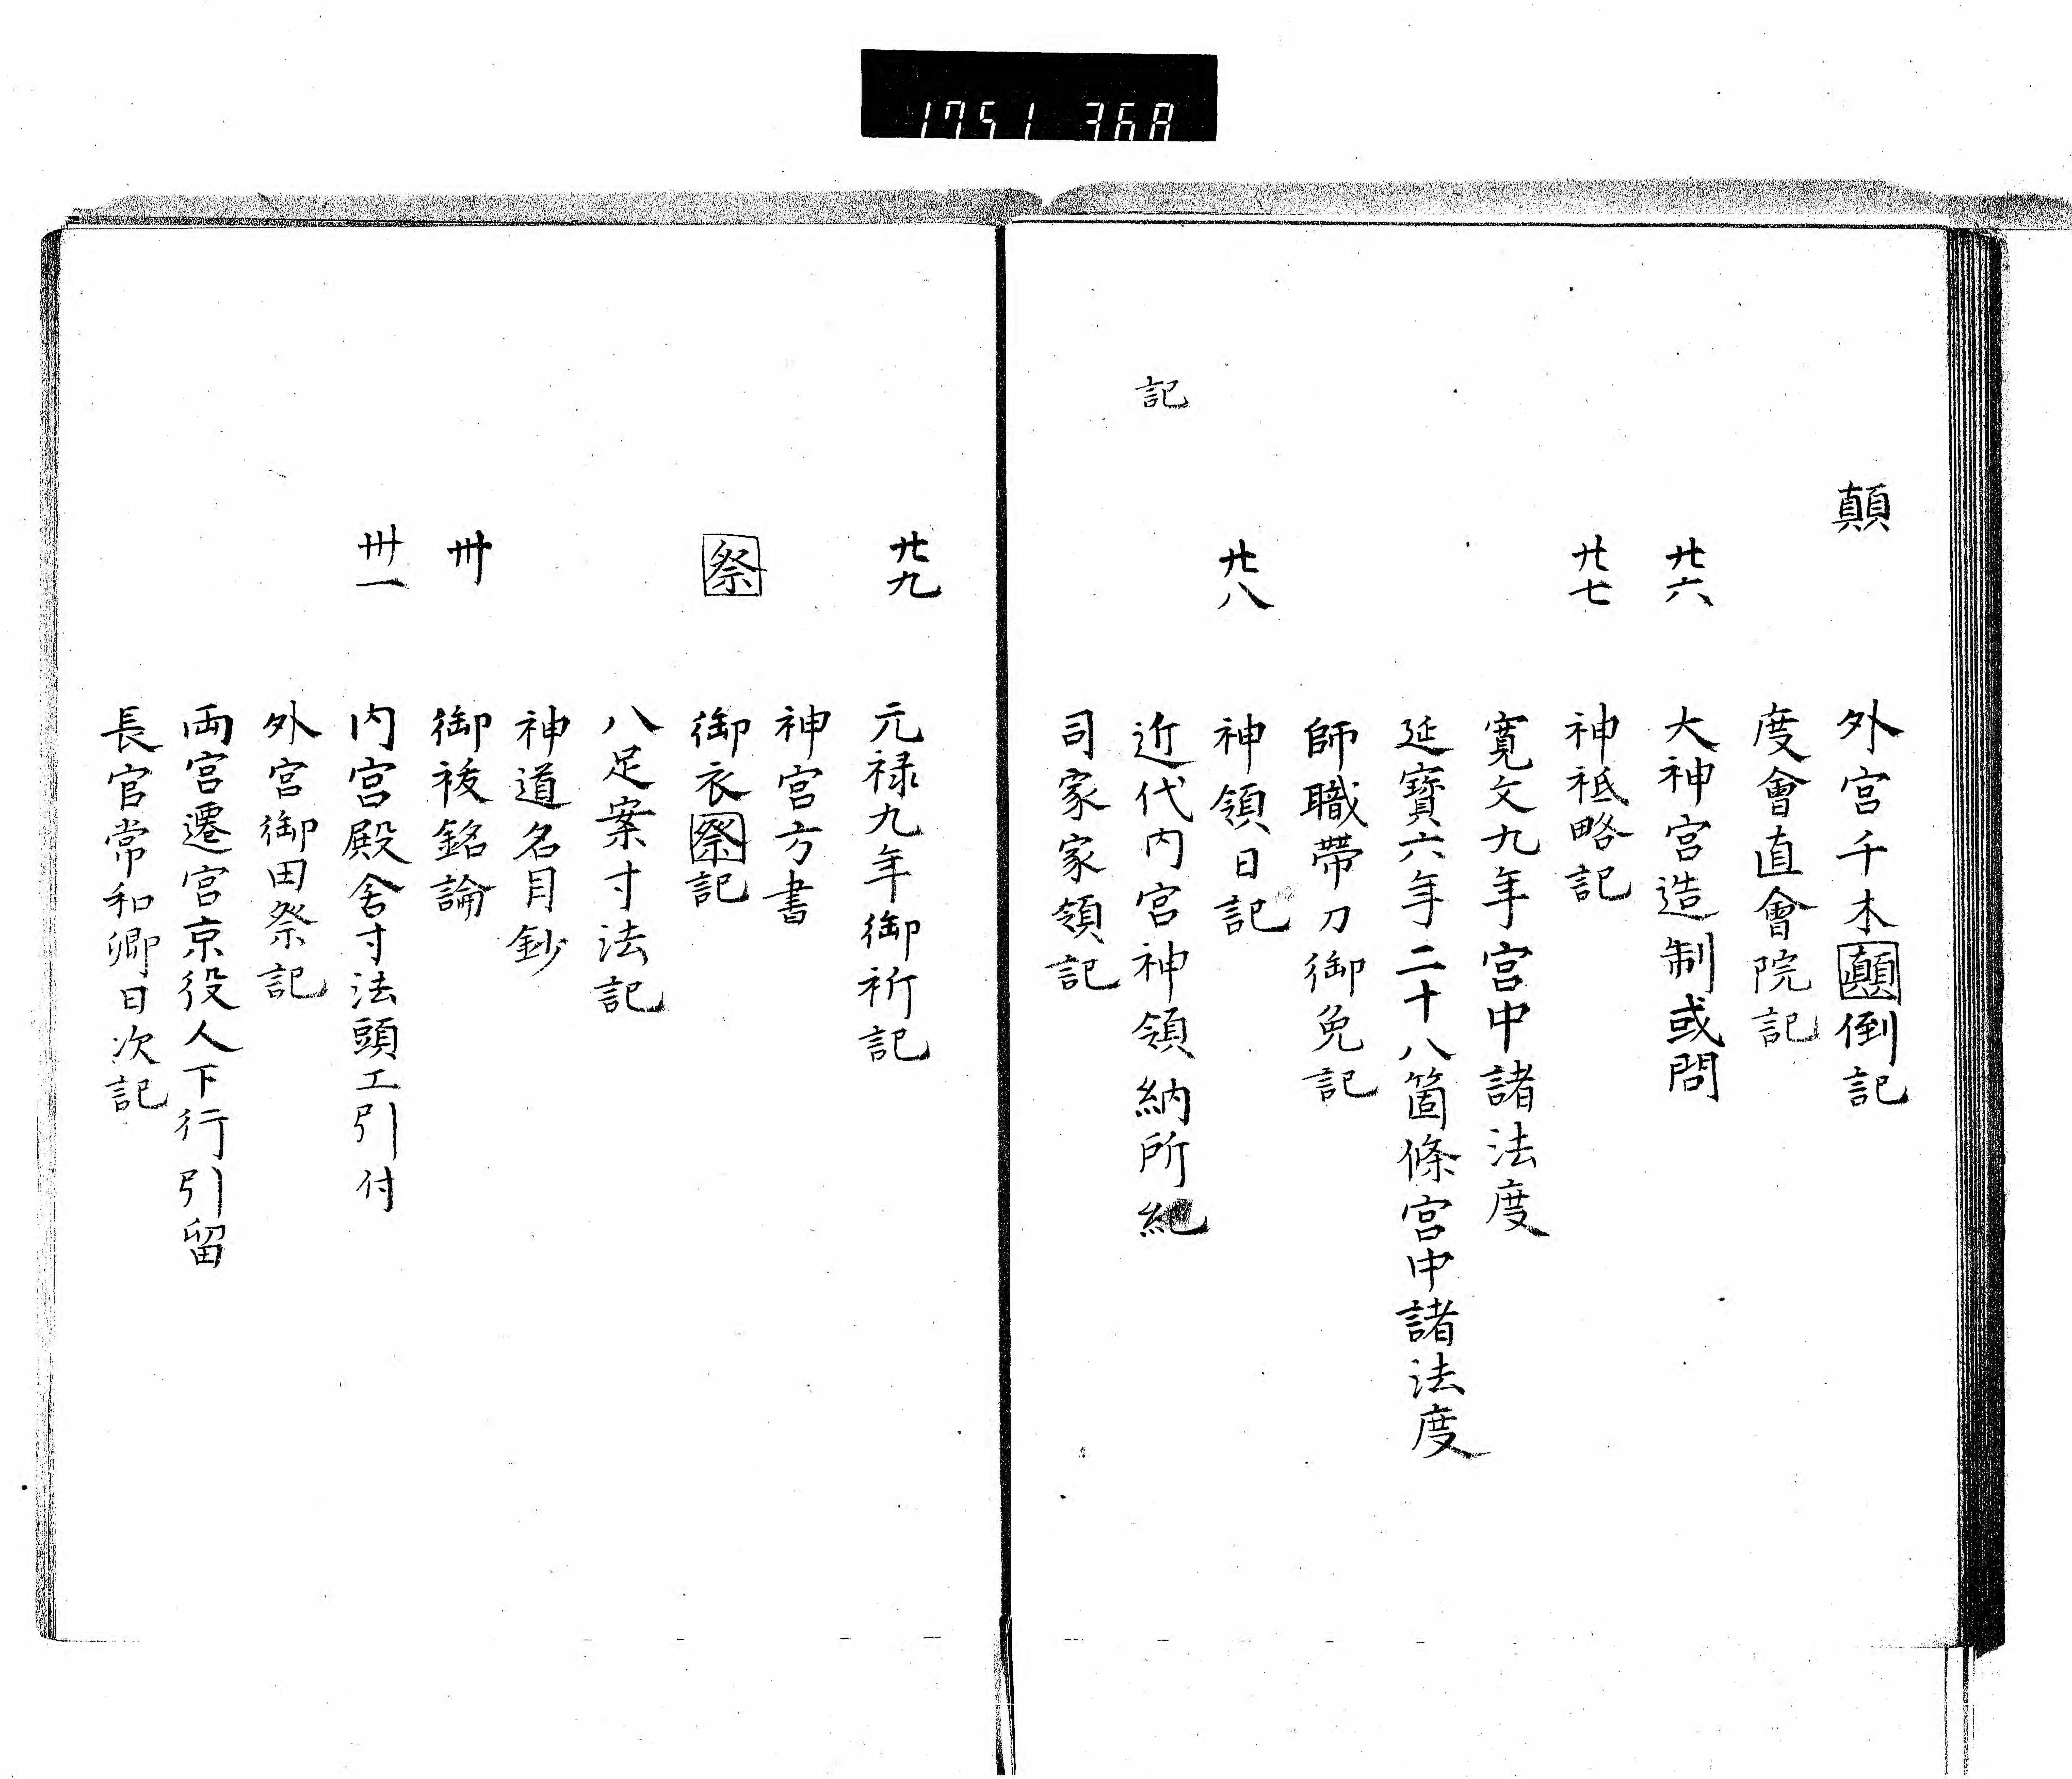 1751 368
顛
外宮千木顛倒記
度會直會院記
廿六
大神宮造制或問
廿七
神祗略記
寛文九年宮中諸法度
延寶六年二十八箇條宮中諸法度
師職帶刀御免記
廿八
神領日記
記
近代内宮神領納所紀
司家家領記
廿九
元禄九年御祈記
神宮方書
祭
御衣祭記
八足案寸法記
神道名目鈔
卅
御祓銘論
卅一
内宮殿舎寸法頭工引付
外宮御田祭記
両宮遷宮京役人下行引留
長官常和卿日次記